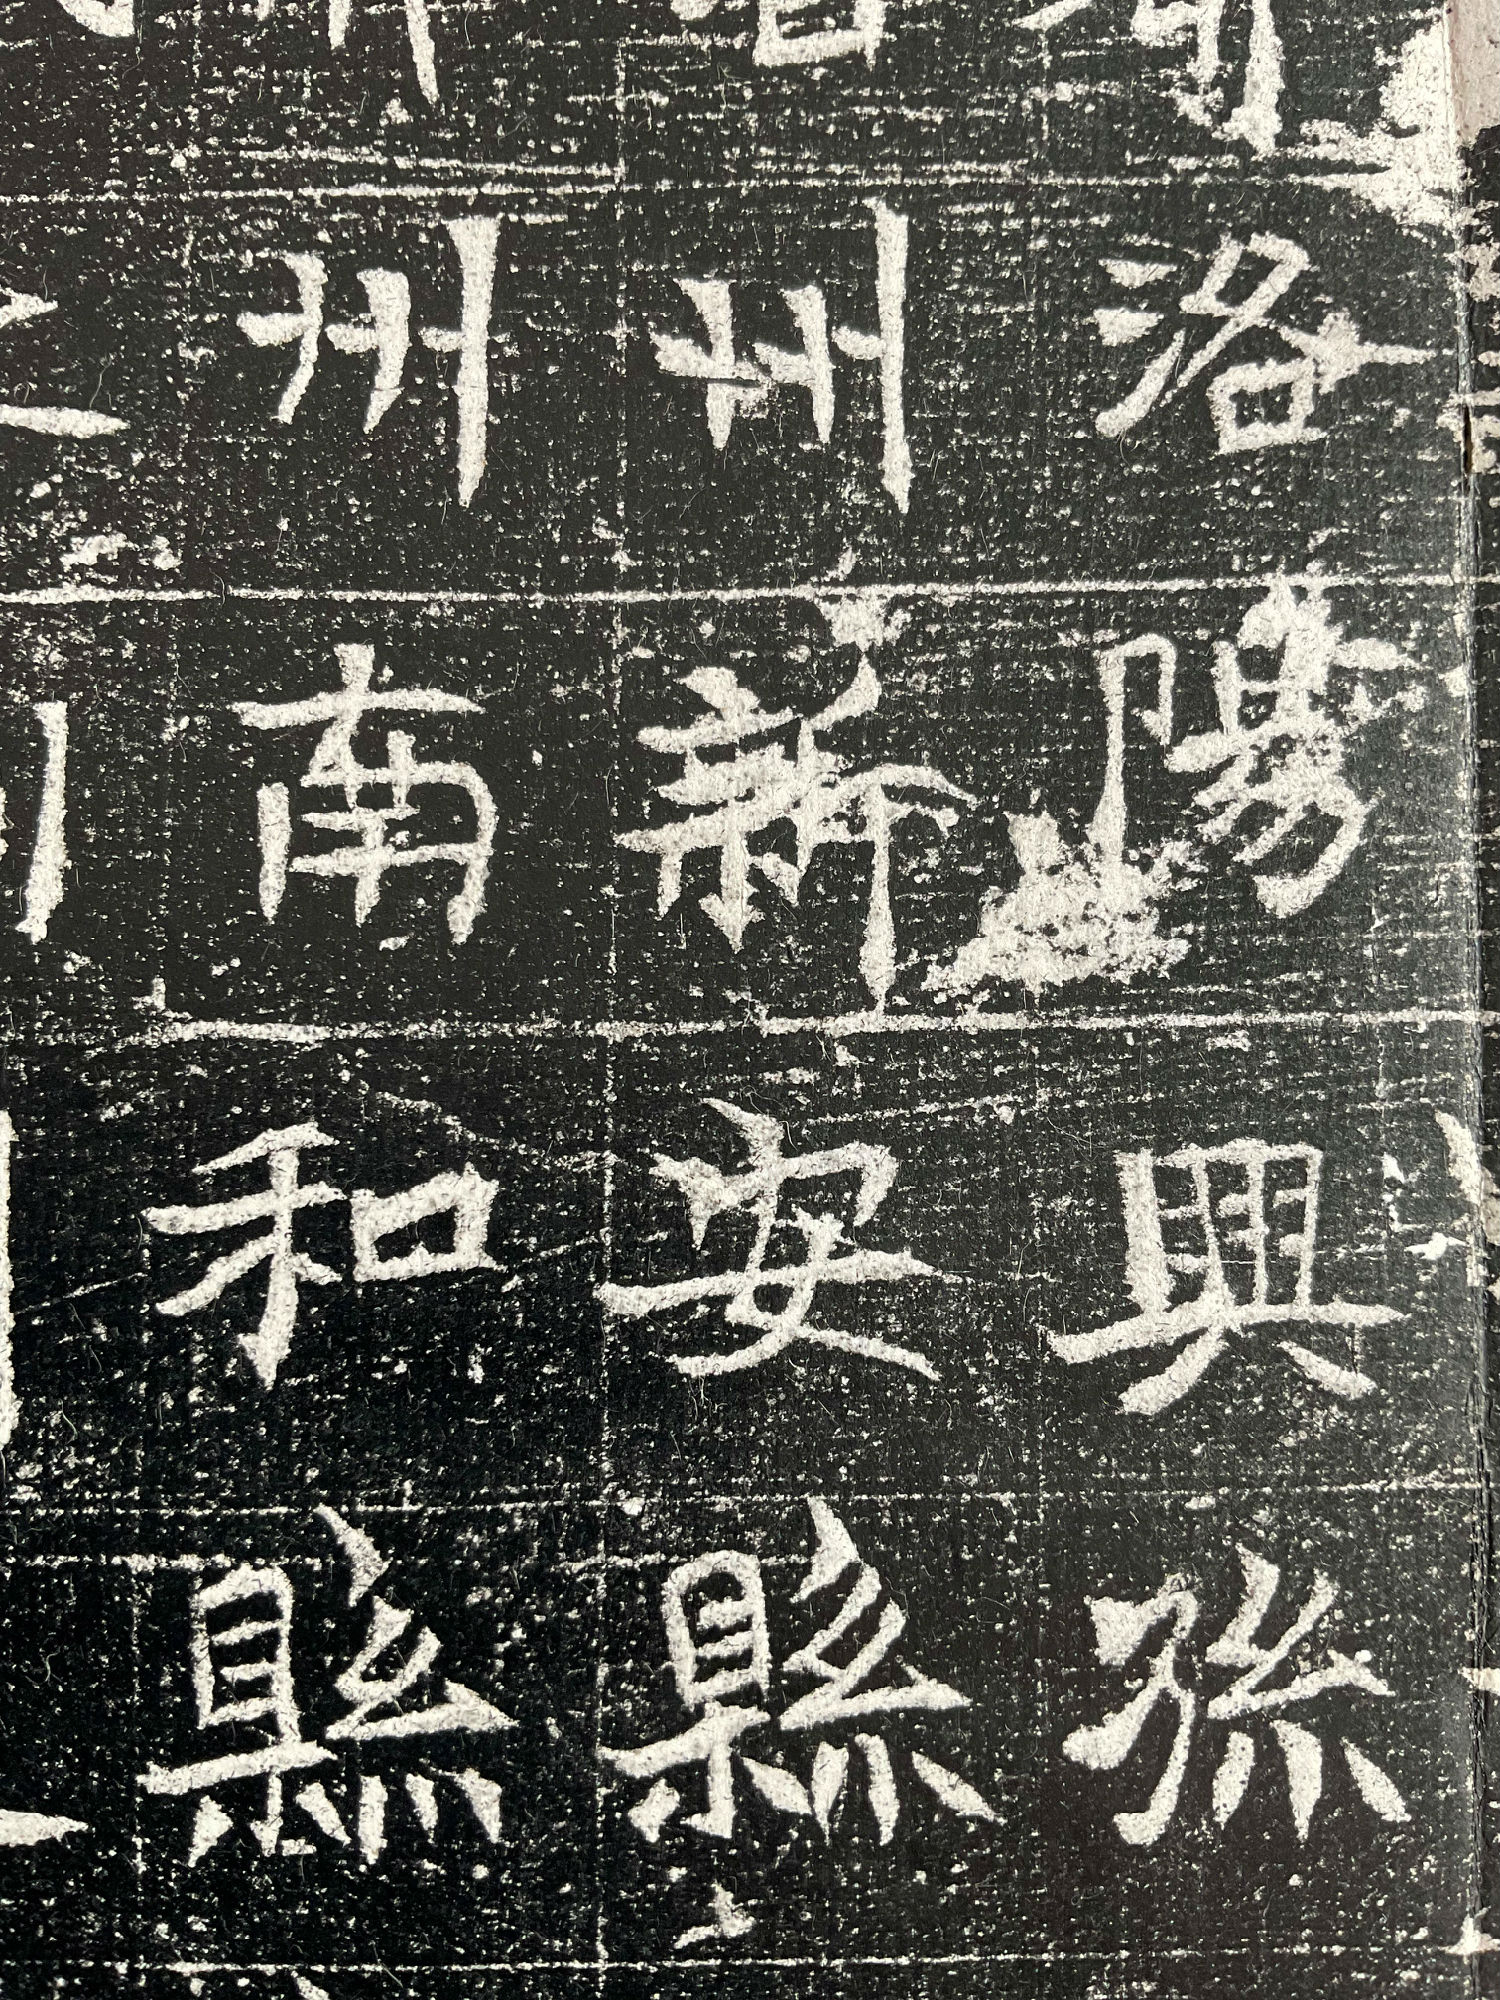 洛陽興孫
州新安縣
州南和縣